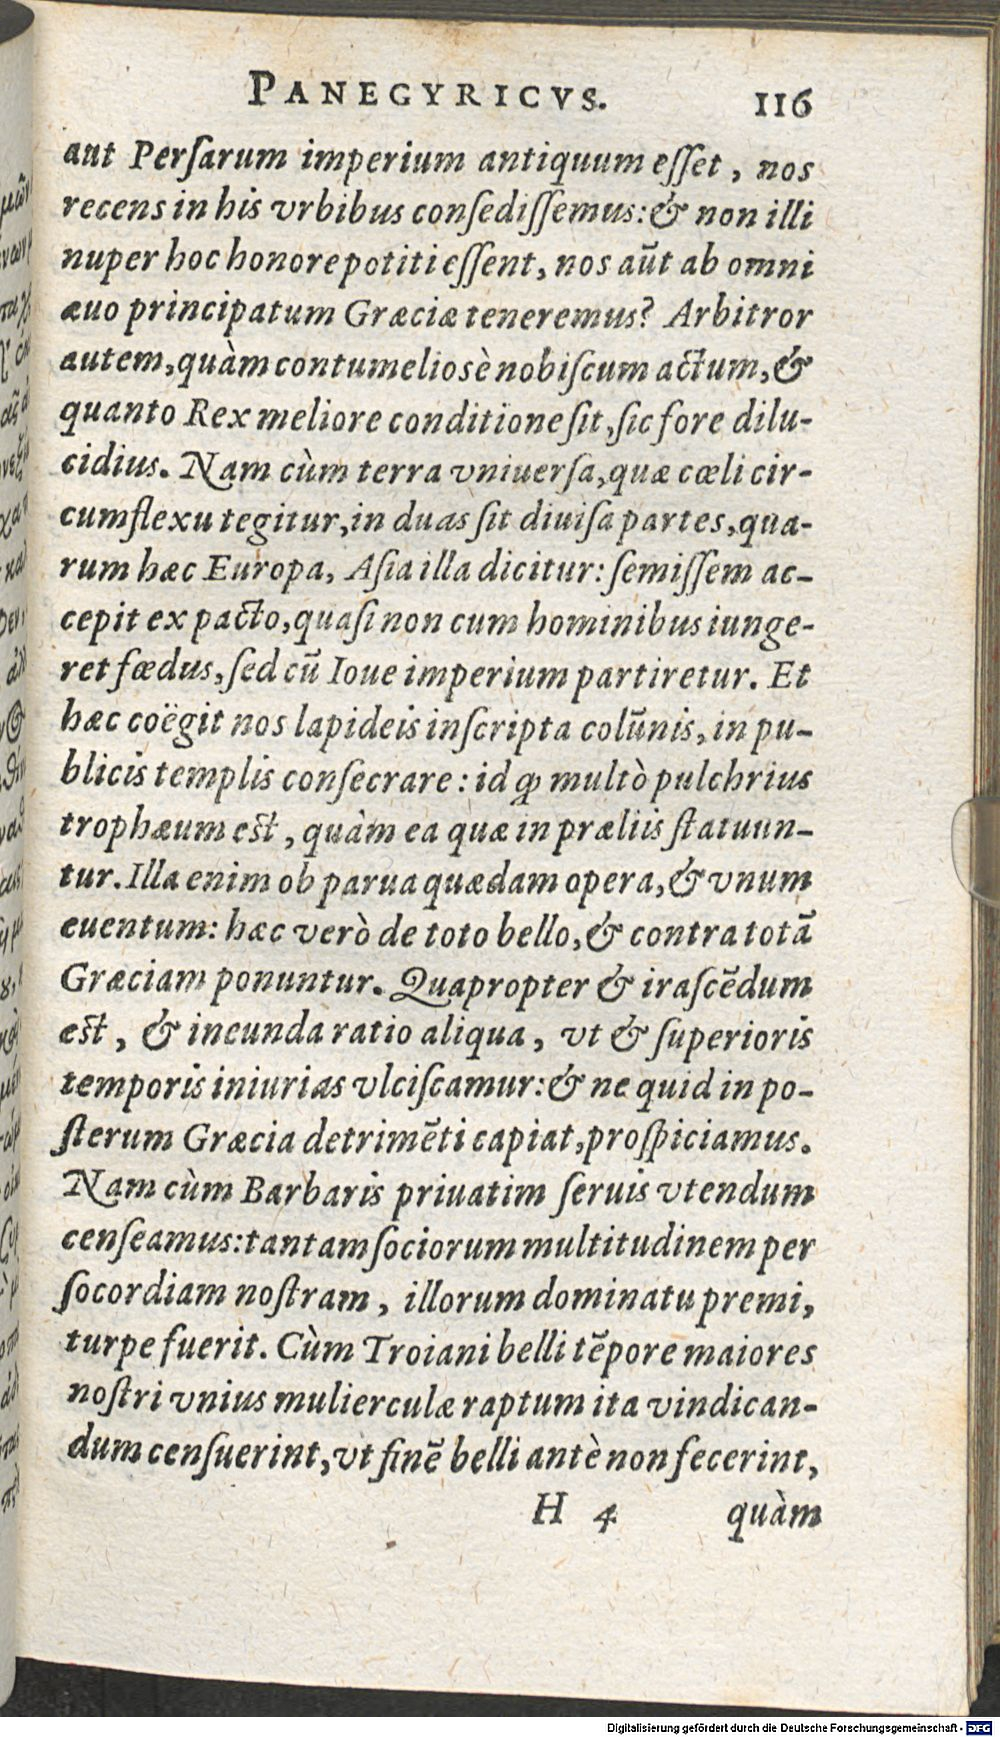 PANEGYRICVS. 116
aut Perſarum imperium antiquum eſſet, nos
recens in his vrbibus conſediſſemus: & non illi
nuper hoc honore potiti eſſent, nos aūt ab omni
æuo principatum Græciæ teneremus? Arbitror
autem, quàm contumeliosè nobiſcum actum, &
quanto Rex meliore conditione ſit, ſic fore dilu-
cidius. Nam cùm terra vniuerſa, quæ cœli cir-
cumflexu tegitur, in duas ſit diuiſa partes, qua-
rum hæc Europa, Aſia illa dicitur: ſemiſſem ac-
cepit ex pacto, quaſi non cum hominibus iunge-
ret fœdus, ſed cū Ioue imperium partiretur. Et
hæc coëgit nos lapideis inſcripta colūnis, in pu-
blicis templis conſecrare: id ꝙ multò pulchrius
trophæum est, quàm ea quæ in præliis ſtatuun-
tur. Illa enim ob parua quædam opera, & vnum
euentum: hæc verò de toto bello, & contra totā
Græciam ponuntur. Quapropter & iraſcēdum
est, & ineunda ratio aliqua, vt & ſuperioris
temporis iniurias vlciſcamur: & ne quid in po-
ſterum Græcia detrimēti capiat, proſpiciamus.
Nam cùm Barbaris priuatim ſeruis vtendum
cenſeamus: tantam ſociorum multitudinem per
ſocordiam noſtram, illorum dominatu premi,
turpe fuerit. Cùm Troiani belli tēpore maiores
noſtri vnius mulierculæ raptum ita vindican-
dum cenſuerint, vt finē belli antè non fecerint,
H 4 quàm
Digitalisierung gefördert durch die Deutsche Forschungsgemeinschaft - DFG